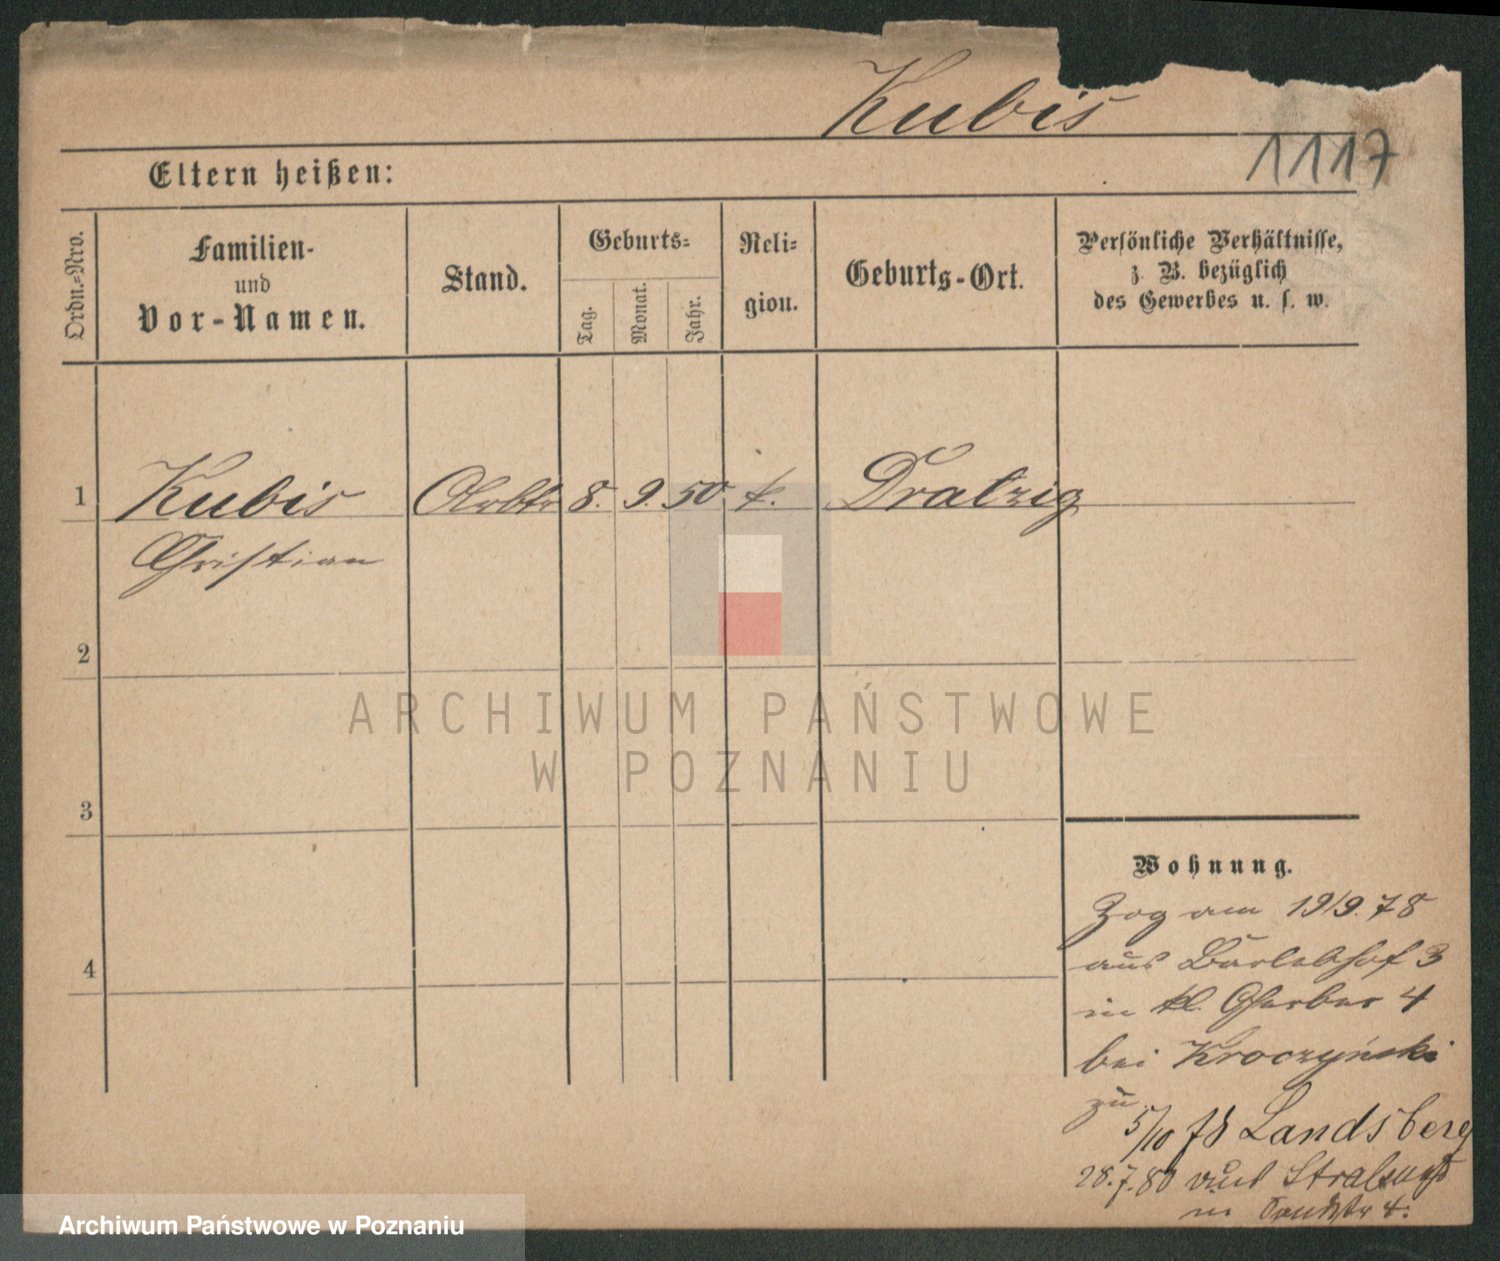 Kubis
1117
Eltern heißen:
Ordn.-Nro.
Familien-
und
Vor-Namen.
Stand.
Geburts-
Tag.
Monat.
Jahr.
Reli-
gion.
Geburts-Ort.
Persönliche Verhältnisse,
z. B. bezüglich
des Gewerbes u. s. w.
1 Kubis Arbtr 8. 9. 50 k. Dratzig
Christian
2
3
4
Wohnung.
Zog am 19/9.78
aus Bartelshof 3
in kl. Gerber 4
bei Kroczyński
zu
5/10 78 Landsberg
28.7.80 aus
in 4.
ARCHIWUM PAŃSTWOWE
W POZNANIU
Archiwum Państwowe w Poznaniu